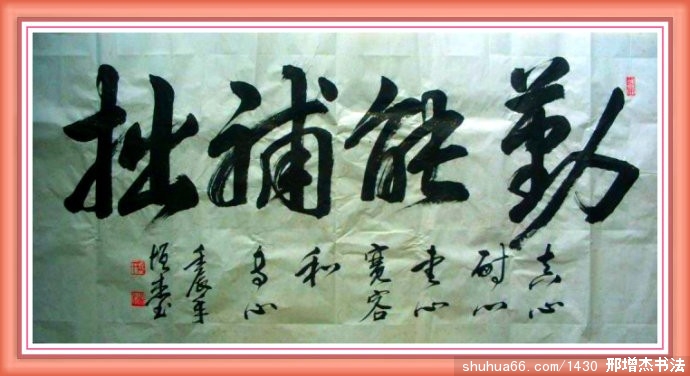 勤能補拙
真心
耐心
爱心
寬容
和
心
壬辰年
shuhua66.com/1430 邢增杰书法